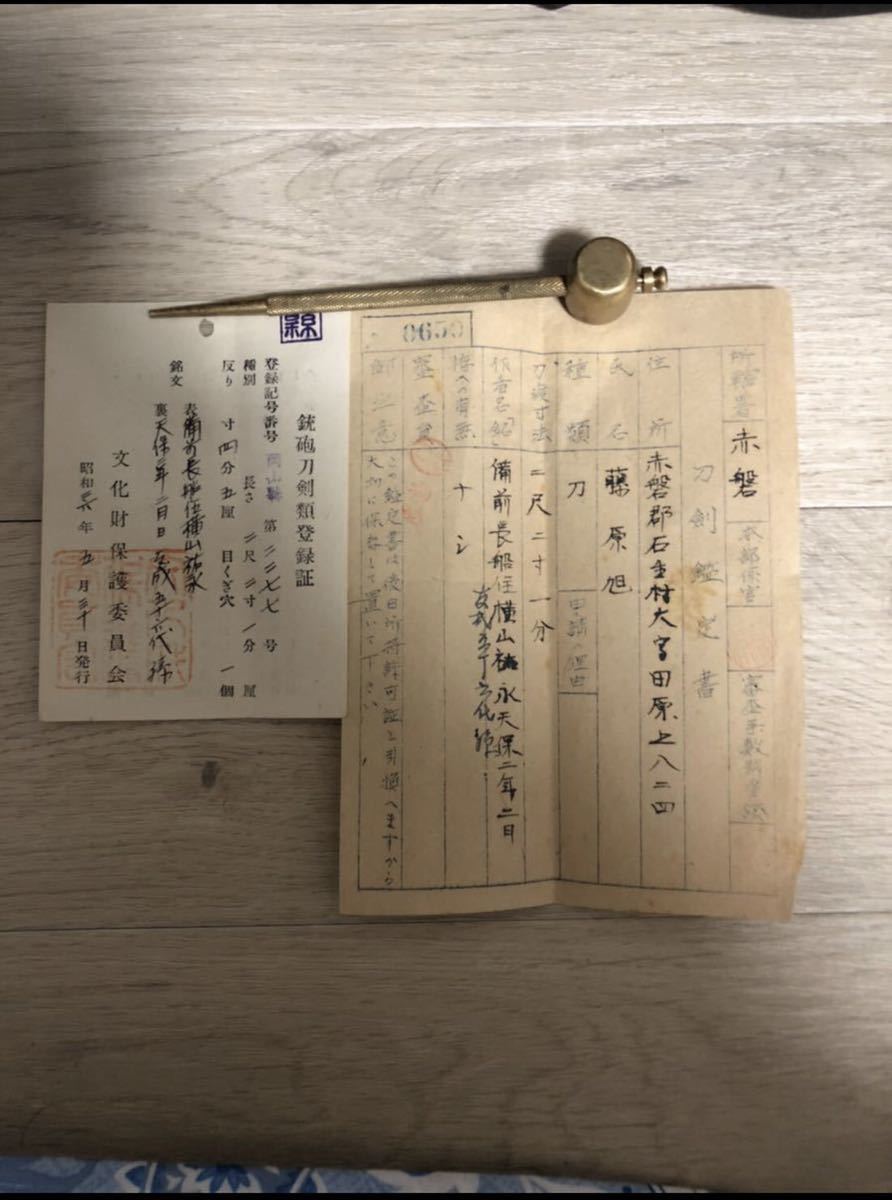 0650
所轄署 赤磐
本部係官
刀劍鑑定書
住所 赤磐郡石生村大字田原上八二四
氏名 藤原旭
種類 刀
申請の理由
刀渡寸法 二尺二寸一分
作者名(銘) 備前長船住横山祐永天保二年二日
友成五十六代孫
ナシ
審査員
御注意 この鑑定書は後日所持許可証と引換へますから
大切に保存して置いて下さい
縣
銃砲刀剣類登録証
登録記号番号 岡山縣 第二二七七号
種別
長さ 二尺二寸一分 厘
反り 寸四分五厘 目くぎ穴 一個
銘文 表 備前長船住横山祐永
裏 天保二年二月日友成五十六代孫
文化財保護委員会
昭和二六年五月三十日発行